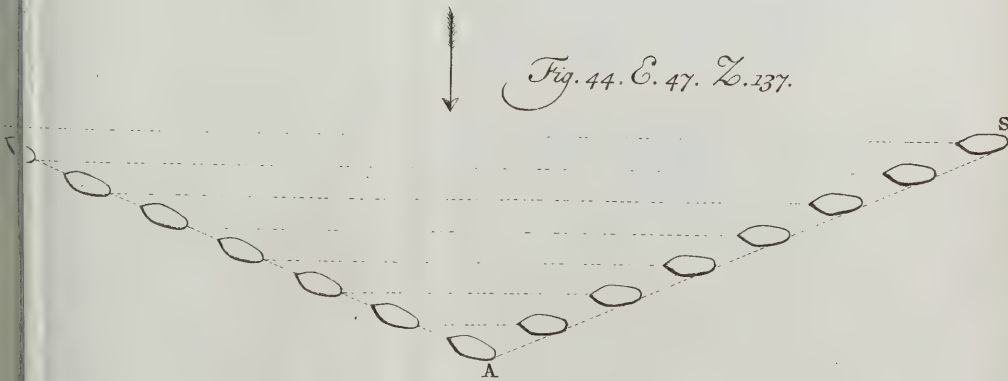 Fig. 44. E. 47. Z. 137.
S
A